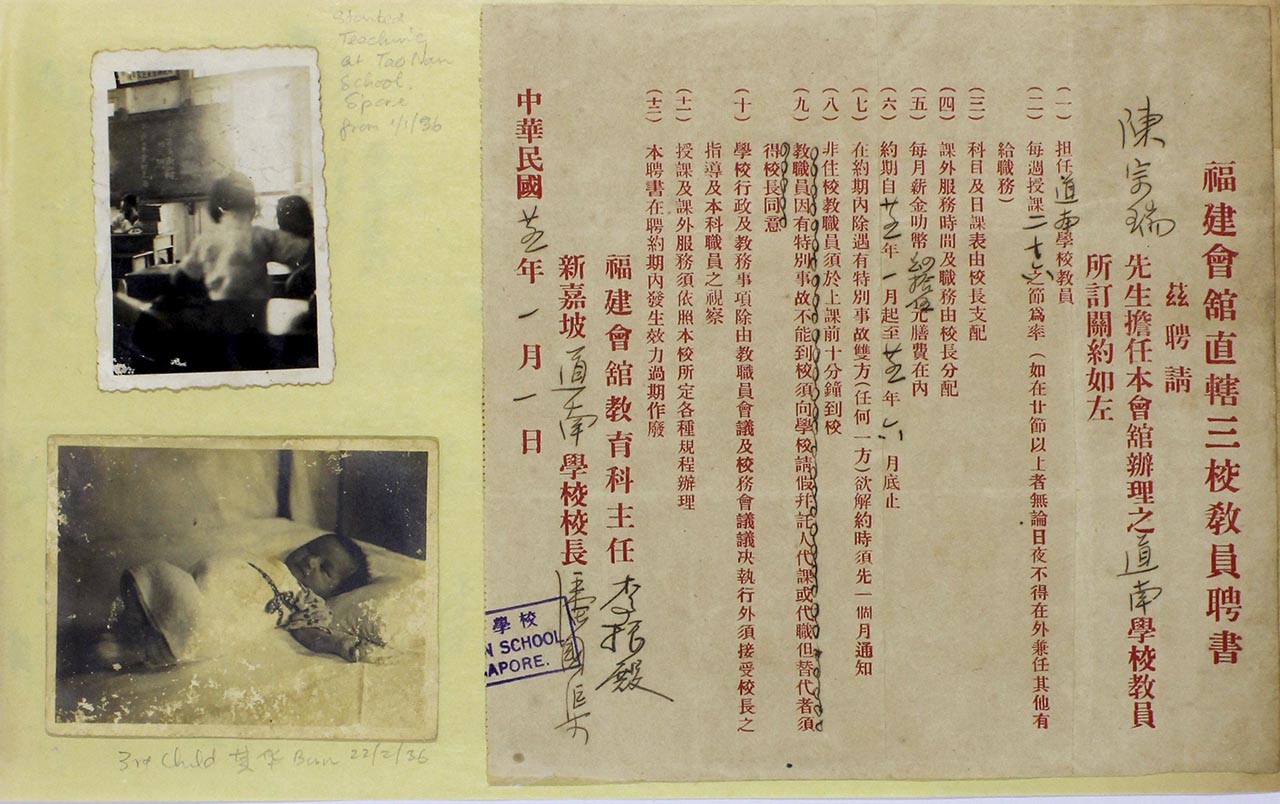 Started
Teaching
at Tao Nan
School.
S'pore
from 1/1/36
3rd Child 其华 Born 22/2/36
福建會舘直轄三校教員聘書
茲聘請
陳宗瑞 先生擔任本會舘辦理之道南學校教員
所訂關約如左
(一) 担任道南學校教員
(二) 每週授課二十六之節爲率(如在廿節以上者無論日夜不得在外兼任其他有
給職務)
(三) 科目及日課表由校長支配
(四) 課外服務時間及職務由校長分配
(五) 每月薪金叻幣 拾伍元膳費在內
(六) 約期自廿五年一月起至廿五年六月底止
(七) 在約期內除遇有特別事故雙方(任何一方)欲解約時須先一個月通知
(八) 非住校教職員須於上課前十分鐘到校
(九) 教職員因有特別事故不能到校須向學校請假幷託人代課或代職但替代者須
得校長同意
(十) 學校行政及教務事項除由教職員會議及校務會議議决執行外須接受校長之
指導及本科職員之視察
(十一) 授課及課外服務須依照本校所定各種規程辦理
(十二) 本聘書在聘約期內發生效力過期作廢
福建會舘教育科主任 李振殿
新嘉坡道南學校校長 潘國渠
中華民國廿五年一月一日
學校
N SCHOOL
APORE.